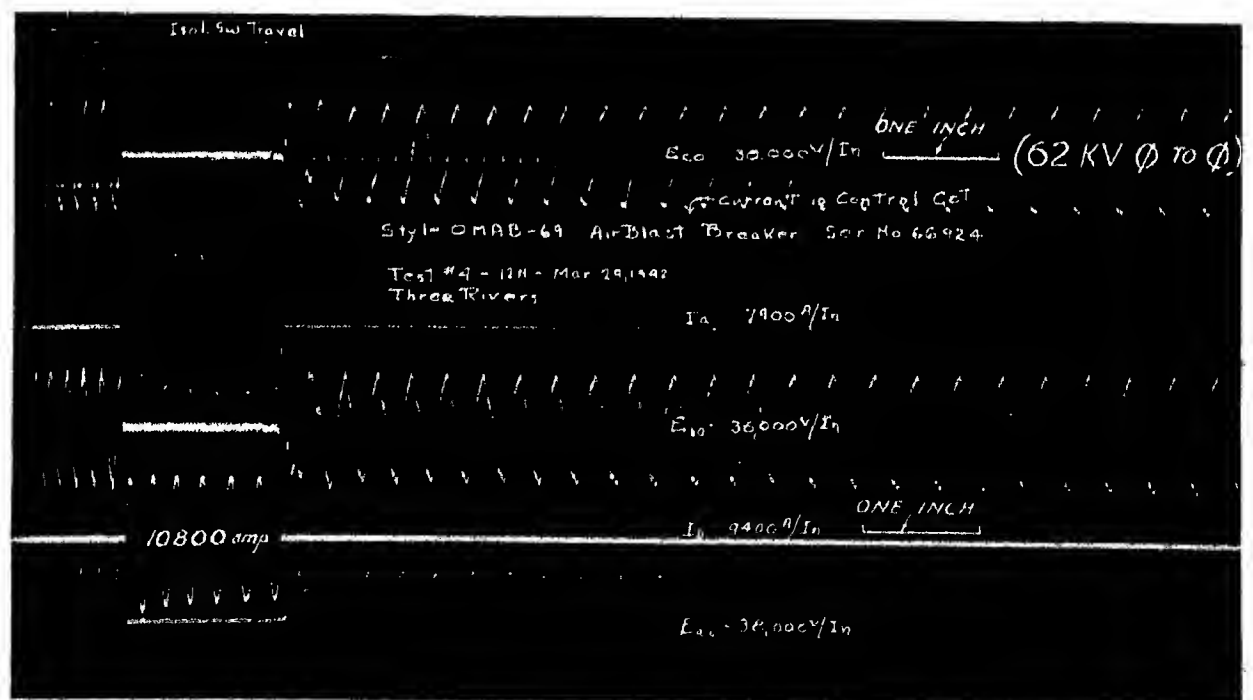 Isol. Sw Travel
ONE INCH
Eco 30,000 V/In (62 KV Ø TO Ø)
Current in Control Cct
Style OMAB-69 AirBlast Breaker Ser No 66924
Test #4 - 12H - Mar 29, 1942
Three Rivers
Ia 7900 A/In
36,000 V/In
ONE INCH
10800 amp
9400 A/In
36,000 V/In